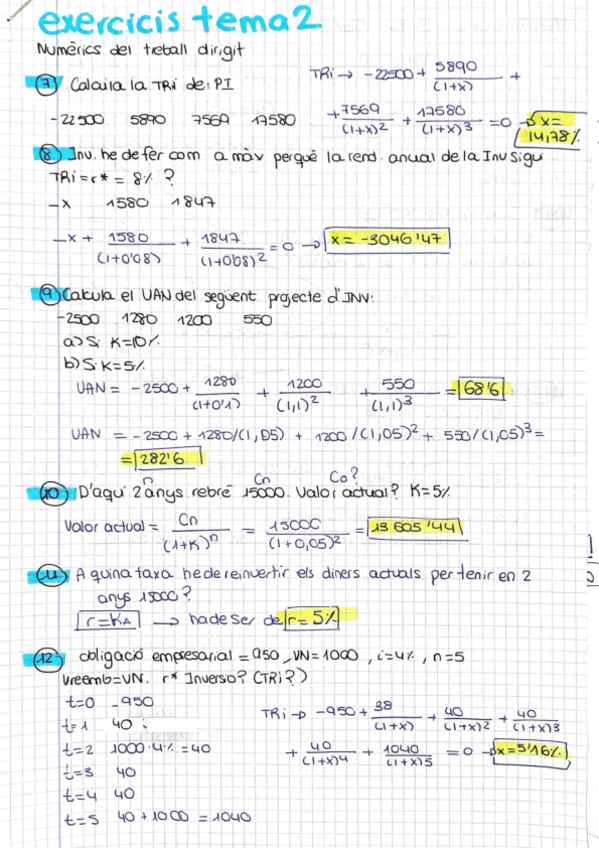 exercicis tema 2
Numèrics del treball dirigit
7 Calcula la TRi del PI
-22500 5890 7569 17580
TRi → -22500 + 5890/(1+x) +
+ 7569/(1+x)2 + 17580/(1+x)3 = 0 → x =
14,78%
8 Inv. he de fer com a màx perquè la rend. anual de la Inv sigui
TRi = r* = 8% ?
-x 1580 1847
-x + 1580/(1+0'08) + 1847/(1+0'08)2 = 0 → x = -3046'47
9 Calcula el VAN del següent projecte d'INV:
-2500 1280 1200 550
a) Si K=10%
b) Si K=5%
VAN = -2500 + 1280/(1+0'1) + 1200/(1,1)2 + 550/(1,1)3 = 68'6
VAN = -2500 + 1280/(1,05) + 1200/(1,05)2 + 550/(1,05)3 =
= 282'6
n Cn Co?
10 D'aquí 2 anys rebré 15000. Valor actual? K=5%
Valor actual = Cn/(1+K)n = 15000/(1+0,05)2 = 13605'44
11 A quina taxa he de reinvertir els diners actuals per tenir en 2
anys 15000?
r=KA → ha de ser de r=5%
1
2
12 obligació empresarial = 950, VN=1000, i=4%, n=5
Vreemb=VN. r* Inverso? (TRi?)
t=0 -950
t=1 40
t=2 1000·4% = 40
t=3 40
t=4 40
t=5 40 + 1000 = 1040
TRi → -950 + 38/(1+x) + 40/(1+x)2 + 40/(1+x)3
+ 40/(1+x)4 + 1040/(1+x)5 = 0 → x = 5'16%